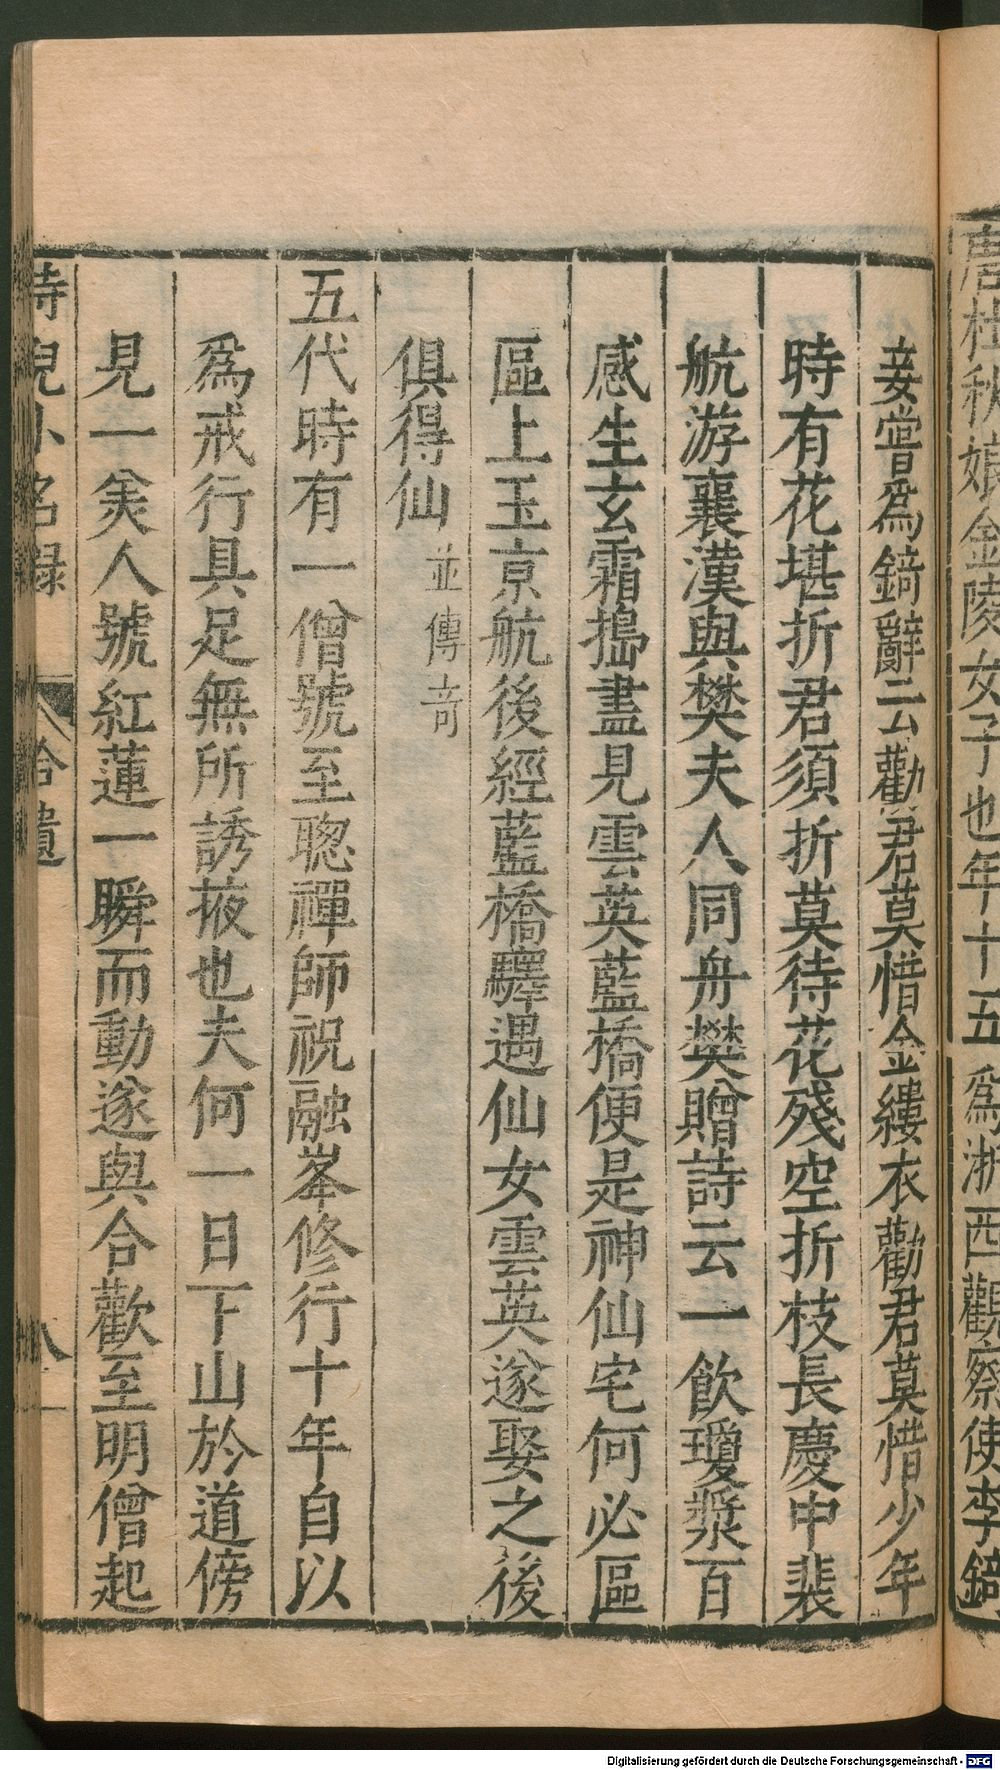 唐杜秋娘金陵女子也年十五爲浙西觀察使李錡
妾嘗爲錡辭云勸君莫惜金縷衣勸君莫惜少年
時有花堪折君須折莫待花殘空折枝長慶中裴
航游襄漢與樊夫人同舟樊贈詩云一飲瓊漿百
感生玄霜搗盡見雲英藍橋便是神仙宅何必區
區上玉京航後經藍橋驛遇仙女雲英遂娶之後
俱得仙並傳奇
五代時有一僧號至聰禪師祝融峯修行十年自以
爲戒行具足無所誘掖也夫何一日下山於道傍
見一美人號紅蓮一瞬而動遂與合歡至明僧起
侍兒小名錄 拾遺 八
Digitalisierung gefördert durch die Deutsche Forschungsgemeinschaft - DFG